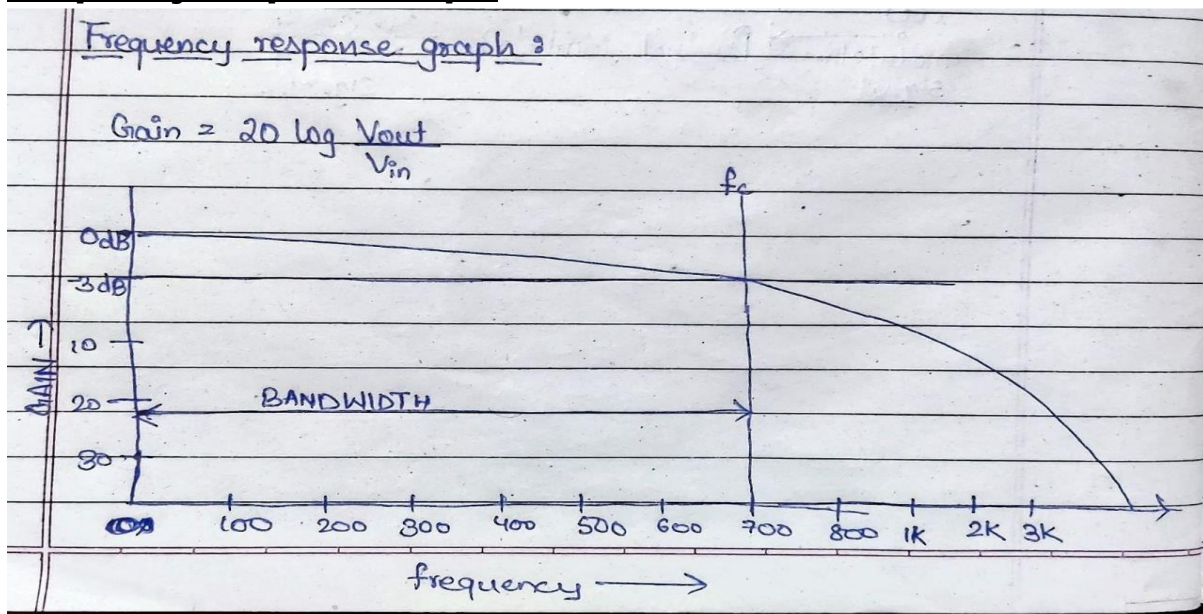 Frequency response graph :
Gain = 20 log Vout
Vin
fc
0dB
-3dB
10
20
30
GAIN →
BANDWIDTH
100 200 300 400 500 600 700 800 1K 2K 3K
frequency →